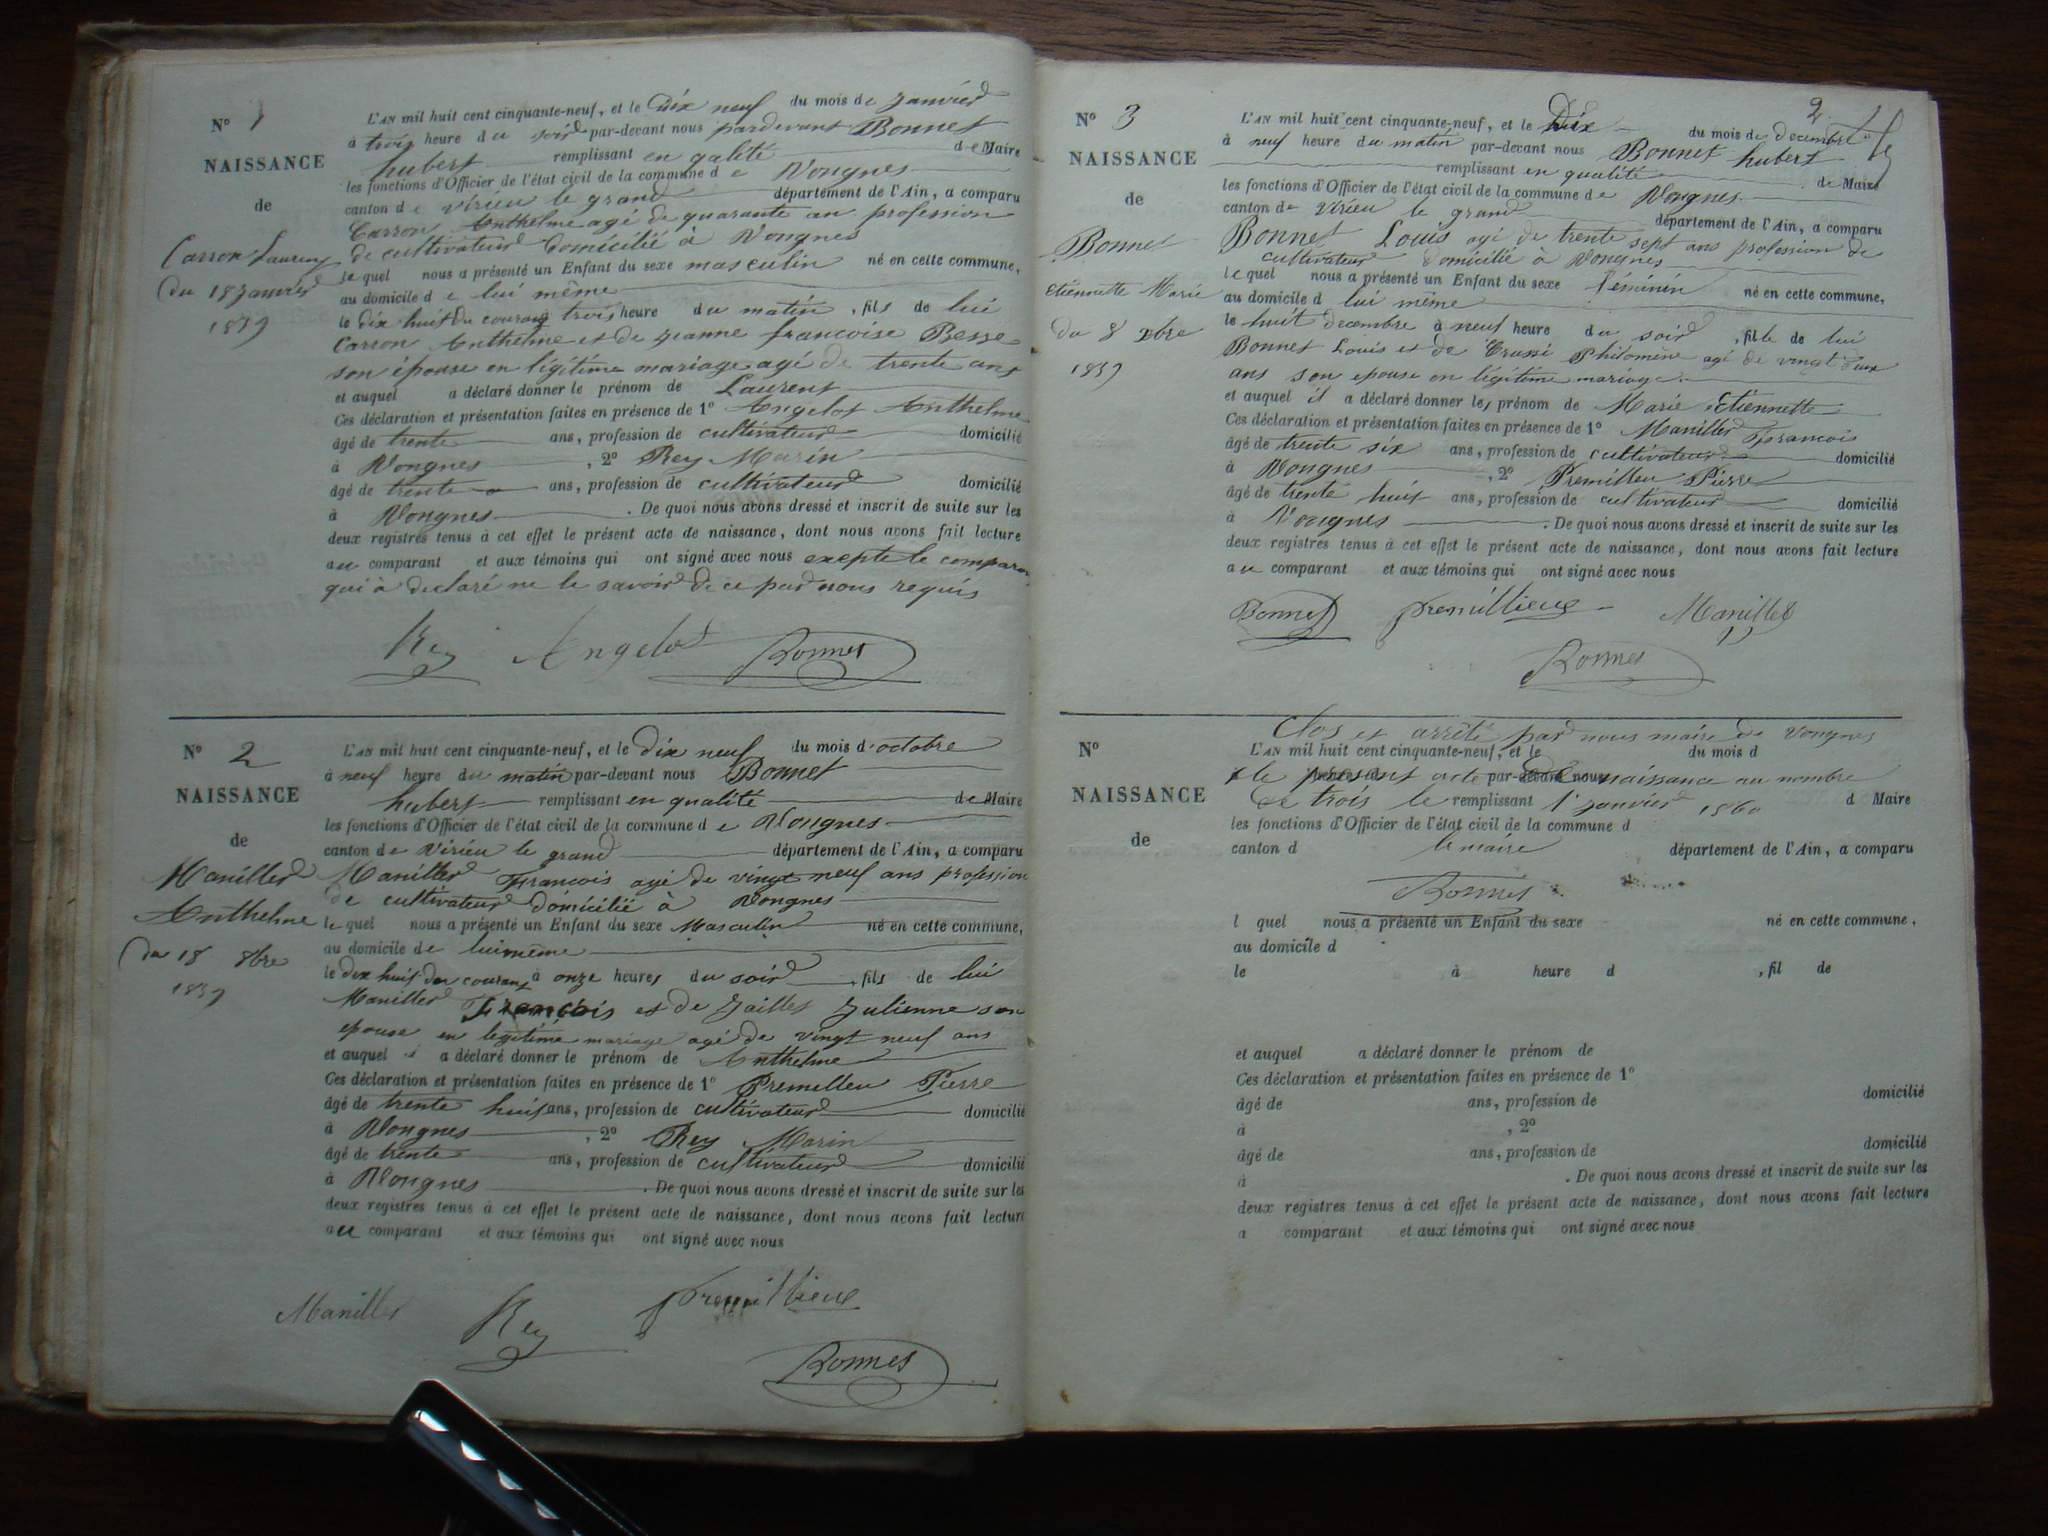 N° 1
NAISSANCE
de
Carron Laurent
du 18 Janvier
1859
L'AN mil huit cent cinquante-neuf, et le dix neuf du mois de Janvier
à trois heure du soir par-devant nous pardevant Bonnet
hubert remplissant en qalité de Maire
les fonctions d'Officier de l'état civil de la commune de Vongnes
canton de virieu le grand département de l'Ain, a comparu
Carron Anthelme agé de quarante an profession
de cultivateur domicilié à Vongnes
le quel nous a présenté un Enfant du sexe masculin né en cette commune,
au domicile de lui même
le dix huit du courant à trois heure du matin, fils de lui
Carron Anthelme et de jeanne francoise Besse
son épouse en légitime mariage agé de trente ans
et auquel a déclaré donner le prénom de Laurent
Ces déclaration et présentation faites en présence de 1° Angelot Anthelme
âgé de trente ans, profession de cultivateur domicilié
à Vongnes, 2° Rey Marin
âgé de trente ans, profession de cultivateur domicilié
à Vongnes. De quoi nous avons dressé et inscrit de suite sur les
deux registres tenus à cet effet le présent acte de naissance, dont nous avons fait lecture
au comparant et aux témoins qui ont signé avec nous exepte le comparan
qui à declaré ne le savoir de ce par nous requis
Rey Angelot Bonnet
N° 2
NAISSANCE
de
Maniller
Anthelme
du 18 8bre
1859
L'AN mil huit cent cinquante-neuf, et le dix neuf du mois d'octobre
à neuf heure du matin par-devant nous Bonnet
hubert remplissant en qualité de Maire
les fonctions d'Officier de l'état civil de la commune de Vongnes
canton de Virieu le grand département de l'Ain, a comparu
Maniller Francois agé de vingt neuf ans profession
de cultivateur domicilié à Vongnes
le quel nous a présenté un Enfant du sexe Masculin né en cette commune,
au domicile de lui même
le dix huit du courant à onze heures du soir, fils de lui
Maniller François et de Jailles Julienne son
epouse en legitime mariage agé de vingt neuf ans
et auquel a déclaré donner le prénom de Anthelme
Ces déclaration et présentation faites en présence de 1° Premilleu Pierre
âgé de trente huit ans, profession de cultivateur domicilié
à Vongnes, 2° Rey Marin
âgé de trente ans, profession de cultivateur domicilié
à Vongnes. De quoi nous avons dressé et inscrit de suite sur les
deux registres tenus à cet effet le présent acte de naissance, dont nous avons fait lecture
au comparant et aux témoins qui ont signé avec nous
Maniller Rey Premillieux
Bonnet
2
N° 3
NAISSANCE
de
Bonnet
Etiennette Marie
du 8 xbre
1859
L'AN mil huit cent cinquante-neuf, et le Dix du mois de decembre
à neuf heure du matin par-devant nous Bonnet hubert
remplissant en qualité de Maire
les fonctions d'Officier de l'état civil de la commune de Vongnes
canton de Virieu le grand département de l'Ain, a comparu
Bonnet Louis agé de trente sept ans profession de
cultivateur domicilié à Vongnes
le quel nous a présenté un Enfant du sexe féminin né en cette commune,
au domicile d lui même
le huit decembre à neuf heure du soir, fille de lui
Bonnet Louis et de Crussi Philomine agé de vingt deux
ans son epouse en légitime mariage
et auquel il a déclaré donner les prénom de Marie Etiennette
Ces déclaration et présentation faites en présence de 1° Maniller François
âgé de trente six ans, profession de cultivateur domicilié
à Vongnes, 2° Premilleu Pierre
âgé de trente huit ans, profession de cultivateur domicilié
à Vongnes. De quoi nous avons dressé et inscrit de suite sur les
deux registres tenus à cet effet le présent acte de naissance, dont nous avons fait lecture
au comparant et aux témoins qui ont signé avec nous
Bonnet Premillieux Maniller
Bonnet
Clos et arrêté par nous maire de Vongnes
N°
NAISSANCE
de
L'AN mil huit cent cinquante-neuf, et le du mois d
le présent acte par-devant nous De naissance au nombre
de trois le remplissant 1er janvier 1860 d Maire
les fonctions d'Officier de l'état civil de la commune d
canton d le maire département de l'Ain, a comparu
Bonnet
l quel nous a présenté un Enfant du sexe né en cette commune,
au domicile d
le à heure d, fil de
et auquel a déclaré donner le prénom de
Ces déclaration et présentation faites en présence de 1°
âgé de ans, profession de domicilié
à, 2°
âgé de ans, profession de domicilié
à. De quoi nous avons dressé et inscrit de suite sur les
deux registres tenus à cet effet le présent acte de naissance, dont nous avons fait lecture
a comparant et aux témoins qui ont signé avec nous